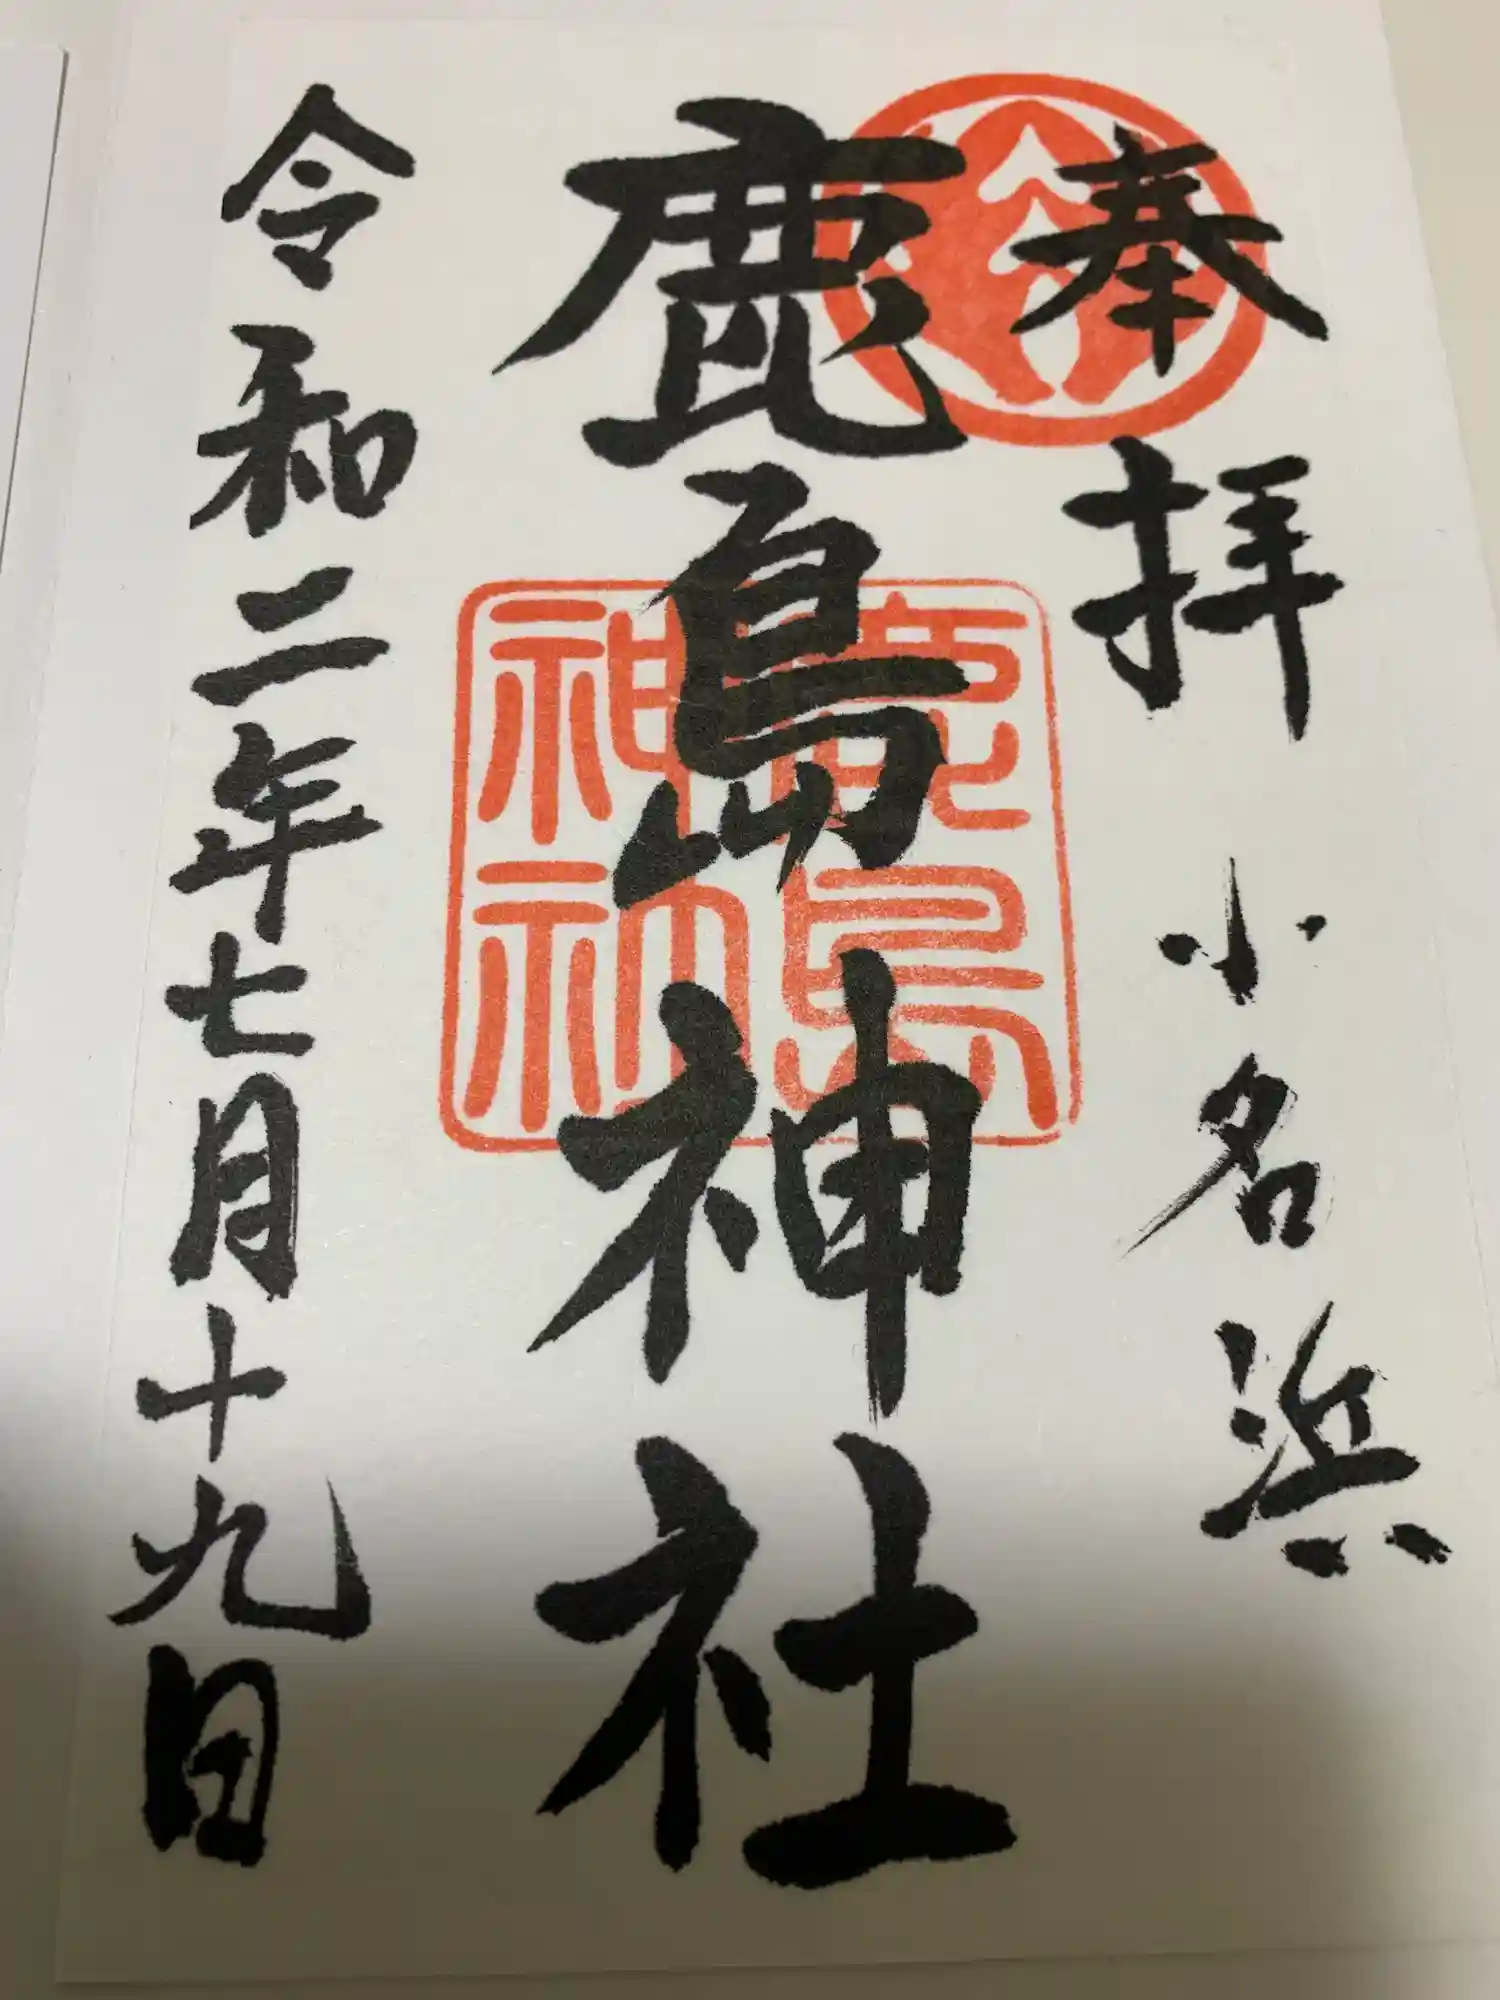 奉拝 小名浜
鹿島神社
鹿島
神社
令和二年七月十九日